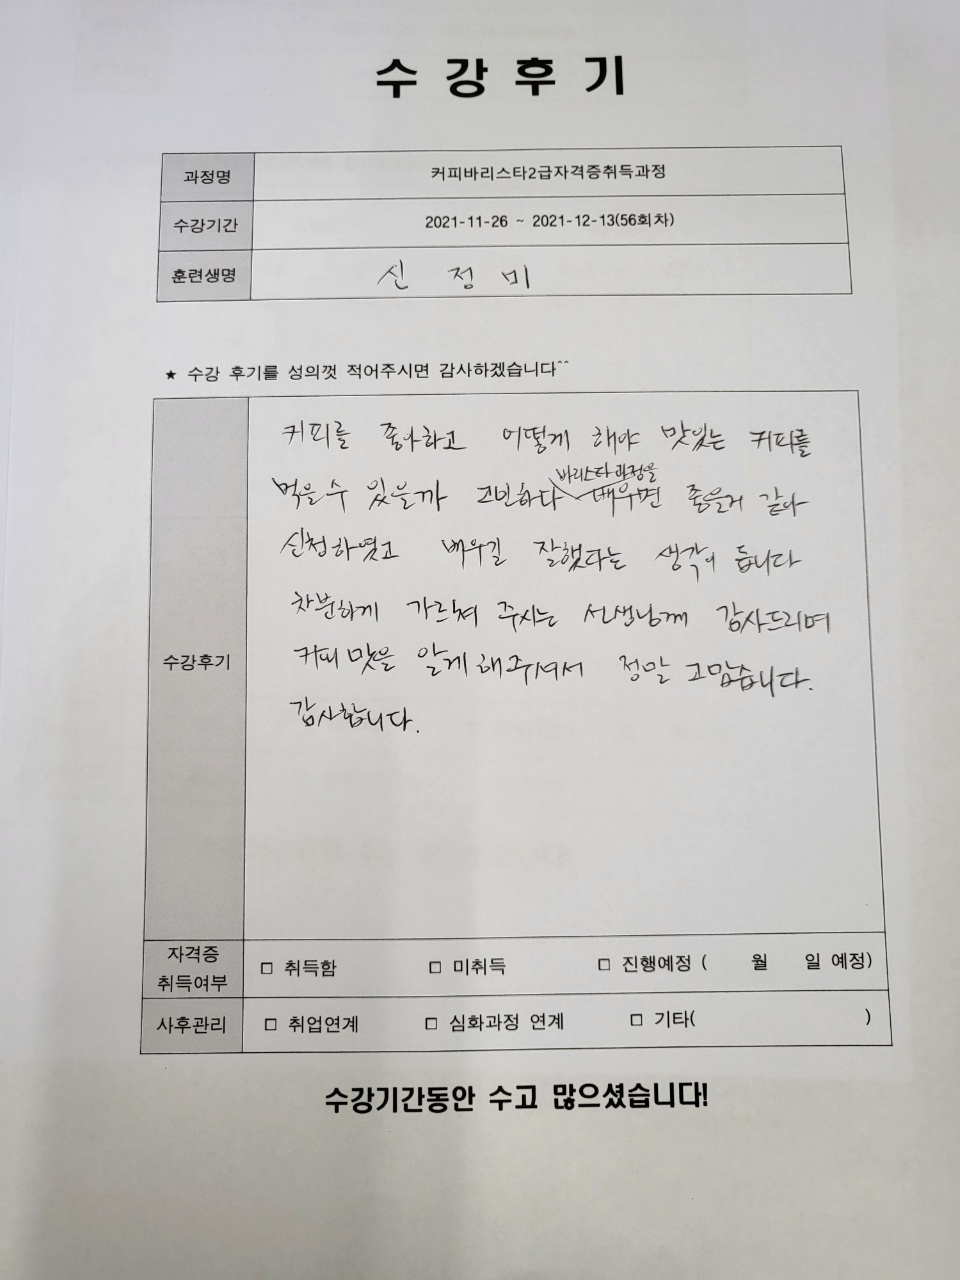 수강후기
과정명 커피바리스타2급자격증취득과정
수강기간 2021-11-26 ~ 2021-12-13(56회차)
훈련생명 신 정 미
★ 수강 후기를 성의껏 적어주시면 감사하겠습니다^^
수강후기
커피를 좋아하고 어떻게 해야 맛있는 커피를
바리스타 과정을
먹을 수 있을까 고민하다 배우면 좋을거 같아
신청하였고 배우길 잘했다는 생각이 듭니다
차분하게 가르쳐 주시는 선생님께 감사드리며
커피 맛을 알게 해주셔서 정말 고맙습니다.
감사합니다.
자격증
취득여부 □ 취득함 □ 미취득 □ 진행예정 ( 월 일 예정)
사후관리 □ 취업연계 □ 심화과정 연계 □ 기타( )
수강기간동안 수고 많으셨습니다!